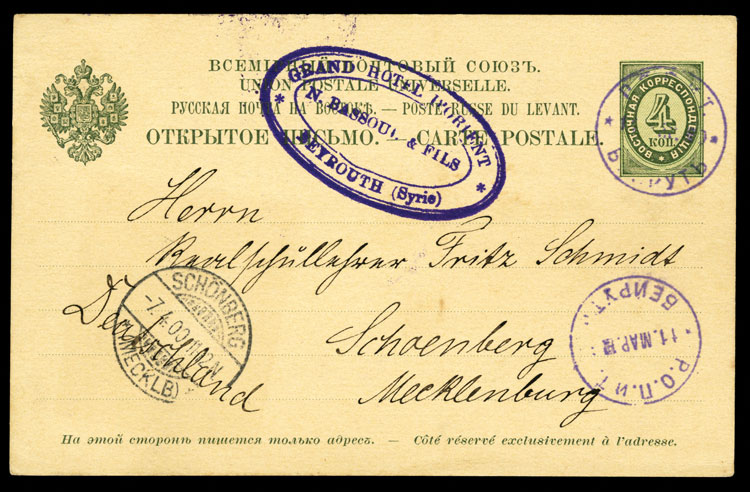 ВСЕМІРНЫЙ ПОЧТОВЫЙ СОЮЗЪ.
UNION POSTALE UNIVERSELLE.
РУССКАЯ ПОЧТА НА ВОСТОКѢ. — POSTE RUSSE DU LEVANT.
ОТКРЫТОЕ ПИСЬМО. — CARTE POSTALE.
* GRAND HOTEL D'ORIENT *
N. BASSOUL & FILS
BEYROUTH (Syrie)
ВОСТОЧНАЯ КОРРЕСПОНДЕНЦІЯ
4
КОП.
Herrn
Realschullehrer Fritz Schmidt
Schoenberg
Mecklenburg
Deutschland
SCHÖNBERG
(MECKLB)
БЕЙРУТЪ
11. МАР.
Р.О.П.иТ.
На этой сторонѣ пишется только адресъ. — Côté réservé exclusivement à l'adresse.